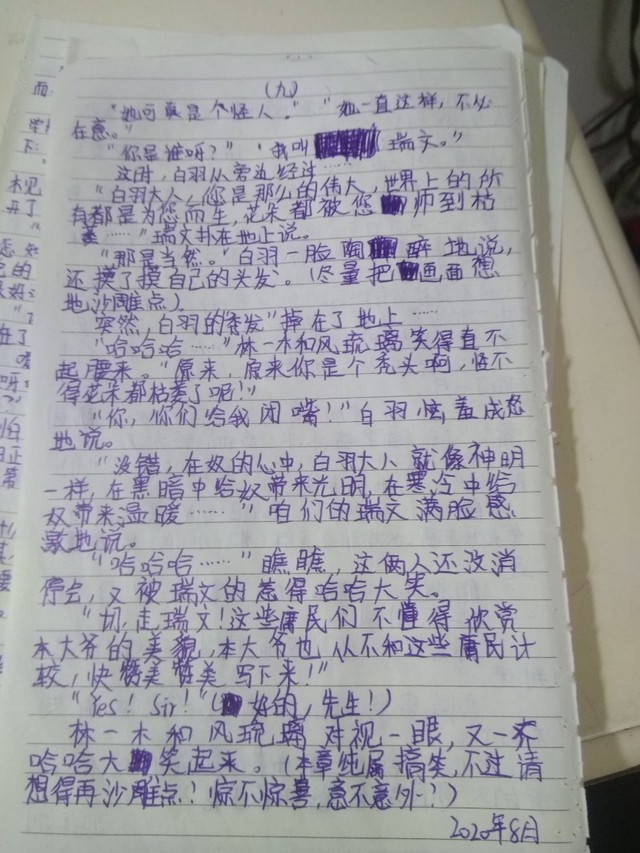 （九）
“她可真是个怪人。”“她一直这样，不必
在意。”
“你是谁呀？”“我叫 瑞文。”
这时，白羽从旁边经过……
“白羽大人，您是那么的伟大，世界上的所
有都是为您而生，花朵都被您 帅到枯
萎……”瑞文扑在地上说。
“那是当然。”白羽一脸陶 醉地说，
还摸了摸自己的头发。（尽量把 画面想
地沙雕点）
突然，白羽的“秀发”掉在了地上……
“哈哈哈……”林一木和风琉璃笑得直不
起腰来。“原来，原来你是个秃头啊，怪不
得花朵都枯萎了呢！”
“你，你们给我闭嘴！”白羽恼羞成怒
地说。
“没错，在奴的心中，白羽大人就像神明
一样，在黑暗中给奴带来光明，在寒冷中给
奴带来温暖……”咱们的瑞文满脸感
激地说。
“哈哈哈……”瞧瞧，这俩人还没消
停会，又被瑞文的惹得哈哈大笑。
“切，走瑞文！这些庸民们不懂得欣赏
本大爷的美貌，本大爷也从不和这些庸民计
较，快赞美赞美写下来！”
“Yes！Sir！”（ 好的，先生！）
林一木和风琉璃对视一眼，又一齐
哈哈大 笑起来。（本章纯属搞笑，不过请
想得再沙雕点！惊不惊喜，意不意外？）
2020年8月